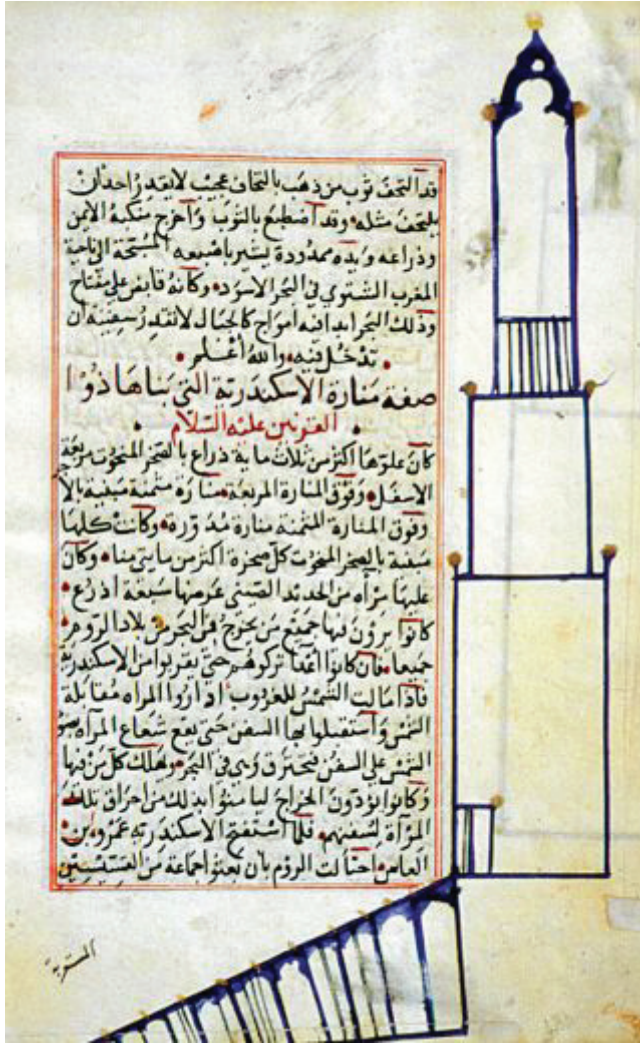 قد التحف ثوب من ذهب بالتحاف عجيب لا يقدر احد ان
يلتحف مثله وقد اضطبع بالثوب واخرج منكبه الايمن
وذراعه ويده ممدودة يشير باصبعه المسبحة الى ناحية
المغرب الشتوي في البحر الاسود وكانه قابض على مفتاح
وذلك البحر ابدا فيه امواج كالجبال لا تقدر سفينة ان
تدخل فيه والله اعلم
صفة منارة الاسكندرية التي بناها ذوا
القرنين عليه السلام
كان علوها اكثر من ثلاث ماية ذراع بالصخر المنحوت مربعة
الاسفل وفوق المنارة المربعة منارة مثمنة مبنية بالا
وفوق المنارة المثمنة منارة مدورة وكانت كلها
مبنية بالصخر المنحوت كل صخرة اكثر من مايتي منا وكان
عليها مرآه من الحديد الصيني عرضها سبعة اذرع
كانوا يرون فيها جميع من يخرج في البحر من بلاد الروم
جميعا فان كانوا اعدا تركوهم حتى يقربوا من الاسكندرية
فاذا مالت الشمس للغروب اداروا المراه مقابلة
الشمس واستقبلوا بها السفن حتى يقع شعاع المرآه بضو
الشمس على السفن فتحترق في البحر ويهلك كل من فيها
وكانوا يؤدون الخراج ليامنوا بذلك من احراق تلك
المرآة لسفنهم فلما استفتح الاسكندرية عمرو بن
العاص احتالت الروم بان بعثوا جماعة من القسيسين